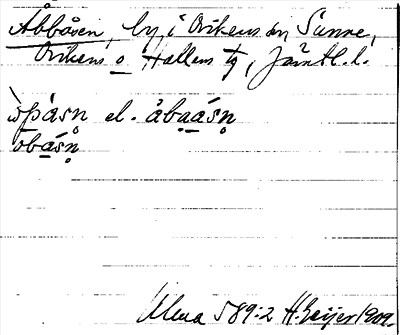 Åbbåsen, by, i Ovikens sn, Sunne,
Ovikens o Hallens tg, Jämtl. l.
el. åbaásn
obásn
Alma 589:2 H. Geijer 1909.